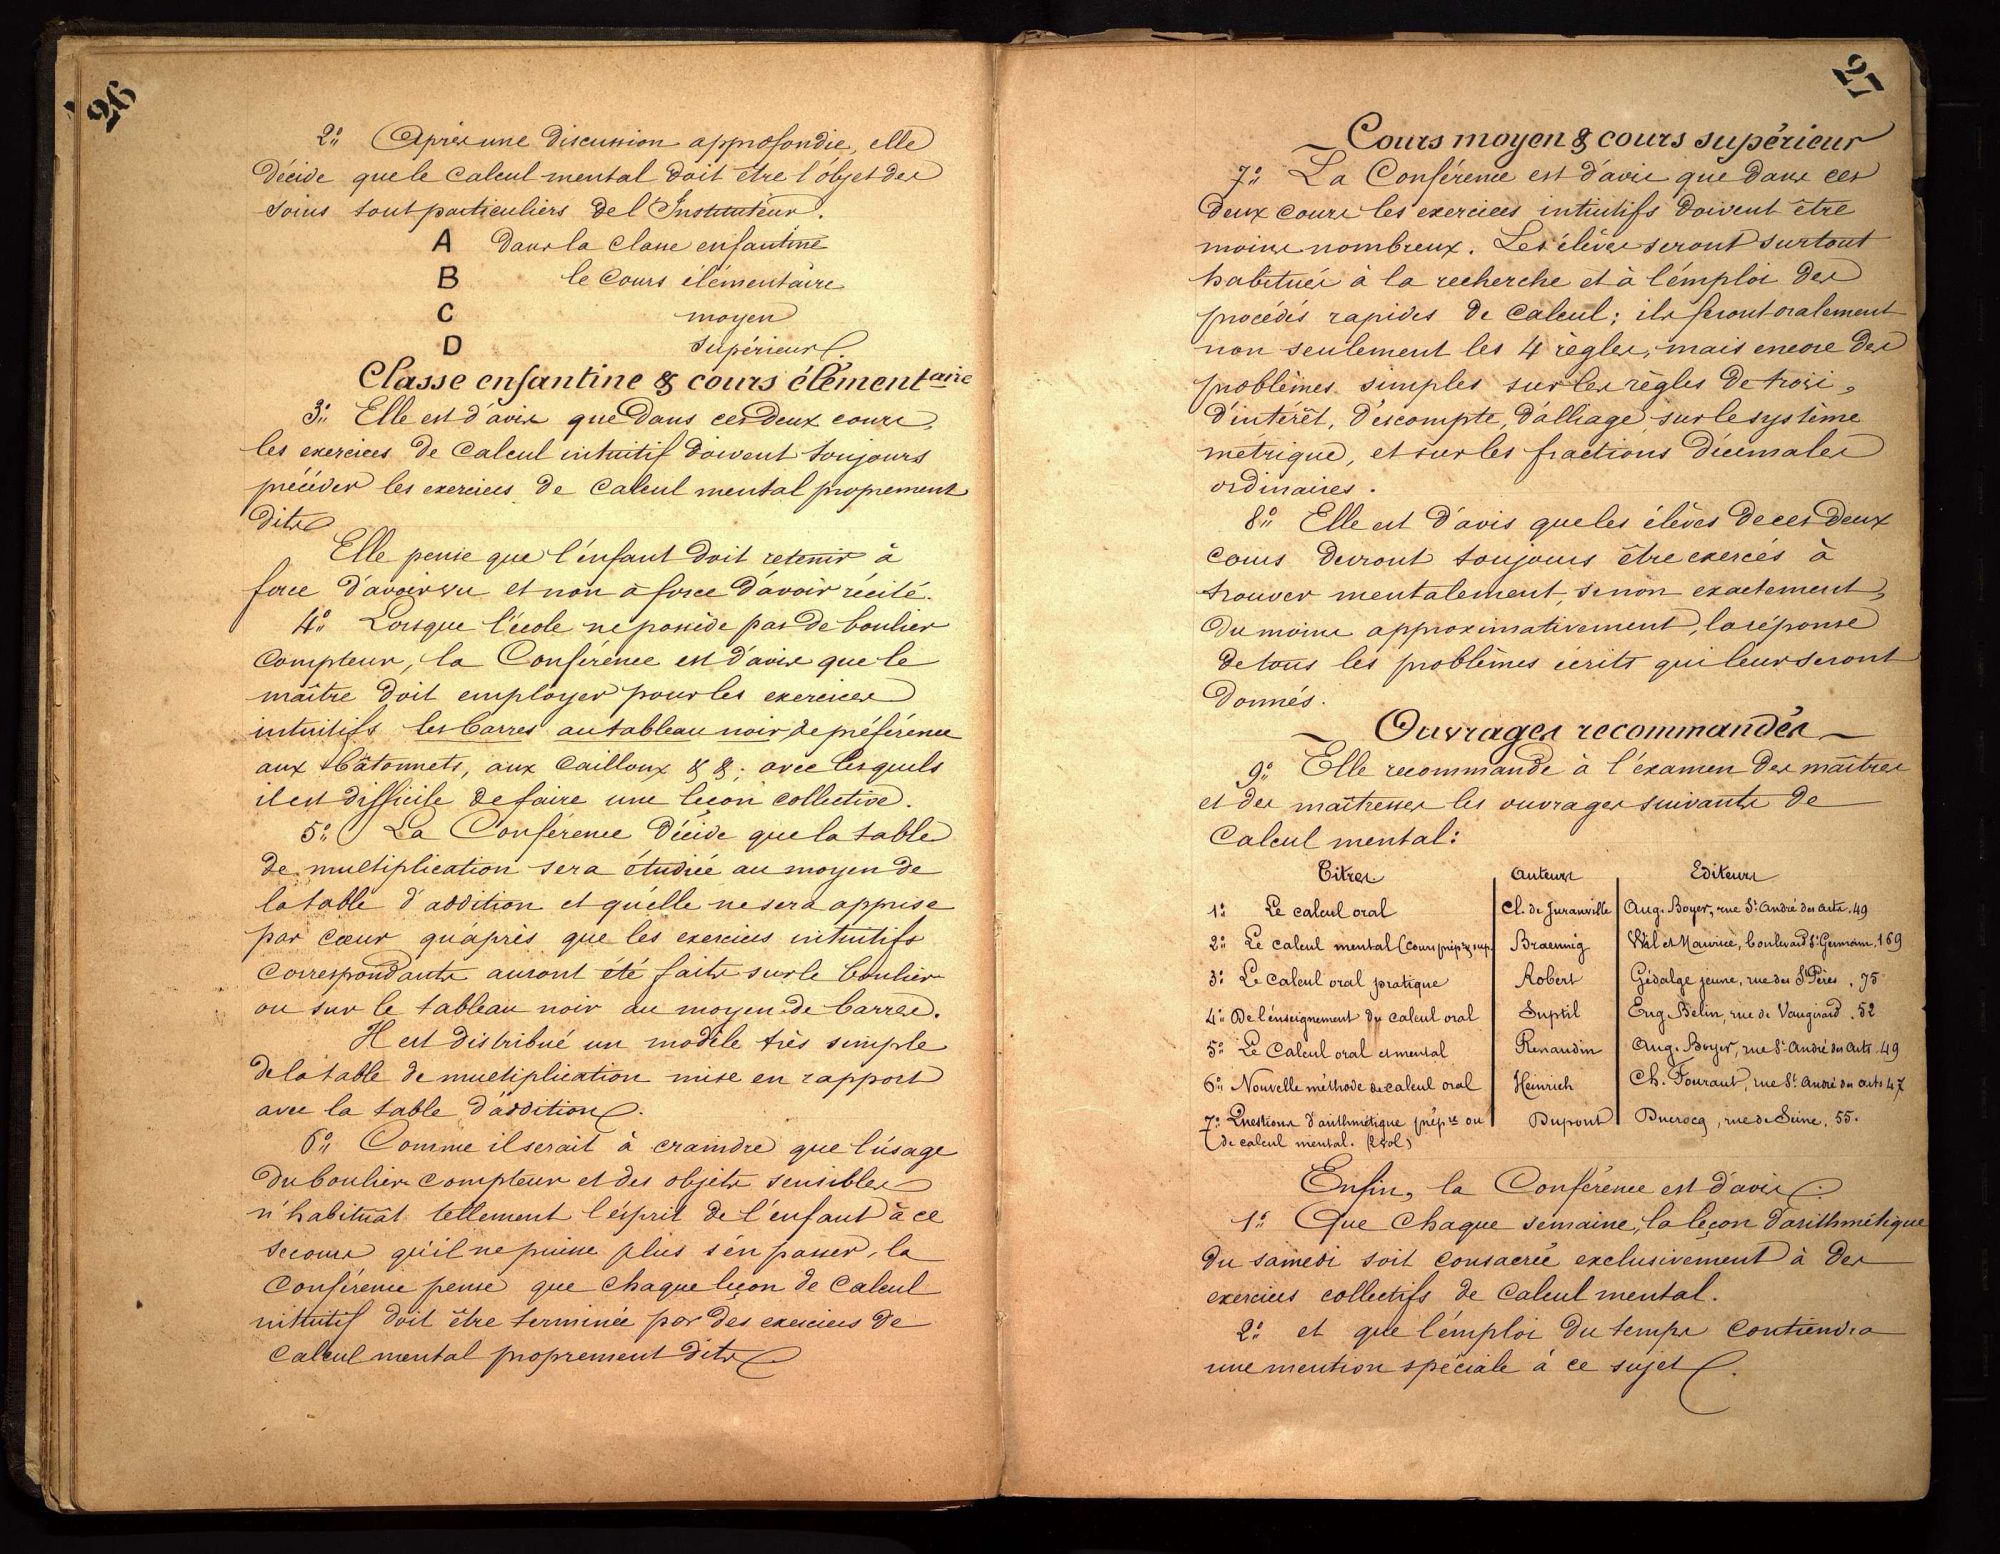 26
2° Après une discussion approfondie, elle
décide que le calcul mental doit être l'objet des
soins tout particuliers de l'Instituteur.
A dans la classe enfantine
B le cours élémentaire
C moyen
D supérieur.
Classe enfantine & cours élémentaire
3° Elle est d'avis que dans ces deux cours,
les exercices de calcul intuitif doivent toujours
précéder les exercices de calcul mental proprement
dits
Elle pense que l'enfant doit retenir à
force d'avoir vu et non à force d'avoir récité.
4° Lorsque l'école ne possède pas de boulier
compteur, la Conférence est d'avis que le
maître doit employer pour les exercices
intuitifs les barres au tableau noir de préférence
aux bâtonnets, aux cailloux & &; avec lesquels
il est difficile de faire une leçon collective.
5° La Conférence décide que la table
de multiplication sera étudiée au moyen de
la table d'addition et qu'elle ne sera apprise
par cœur qu'après que les exercices intuitifs
correspondants auront été faits sur le boulier
ou sur le tableau noir au moyen de barres.
Il est distribué un modèle très simple
de la table de multiplication mise en rapport
avec la table d'addition.
6° Comme il serait à craindre que l'usage
du boulier compteur et des objets sensibles
n'habituât tellement l'esprit de l'enfant à ce
secours qu'il ne puisse plus s'en passer, la
Conférence pense que chaque leçon de calcul
intuitif doit être terminée par des exercices de
calcul mental proprement dits
27
Cours moyen & cours supérieur
7° La Conférence est d'avis que dans ces
deux cours les exercices intuitifs doivent être
moins nombreux. Les élèves seront surtout
habitués à la recherche et à l'emploi des
procédés rapides de calcul; ils feront oralement
non seulement les 4 règles, mais encore des
problèmes simples sur les règles de trois,
d'intérêt, d'escompte, d'alliage, sur le système
métrique, et sur les fractions décimales
ordinaires.
8° Elle est d'avis que les élèves de ces deux
cours devront toujours être exercés à
trouver mentalement, sinon exactement,
du moins approximativement, la réponse
de tous les problèmes écrits qui leur seront
donnés.
Ouvrages recommandés
9° Elle recommande à l'examen des maîtres
et des maîtresses les ouvrages suivants de
calcul mental:
Titres Auteurs Editeurs
1° Le calcul oral Cl. de Juranville Aug. Boyer, rue St André des arts. 49
2° Le calcul mental (cours prép. & sup. Braennig Wel et Maurice, boulevard St Germain, 169
3° Le calcul oral pratique Robert Gédalge jeune, rue des Sts Pères, 75
4° De l'enseignement du calcul oral Suptil Eug. Belin, rue de Vaugirard. 52
5° Le calcul oral et mental Renaudin Aug. Boyer, rue St André des arts. 49
6° Nouvelle méthode de calcul oral Heinrich Ch. Fouraut, rue St André des arts 47
7° Questions d'arithmétique prépres ou Dupont Ducrocq, rue de Seine, 55.
de calcul mental. (2 vol)
Enfin, la Conférence est d'avis
1° Que chaque semaine, la leçon d'arithmétique
du samedi soit consacrée exclusivement à des
exercices collectifs de calcul mental.
2° et que l'emploi du temps contiendra
une mention spéciale à ce sujet.